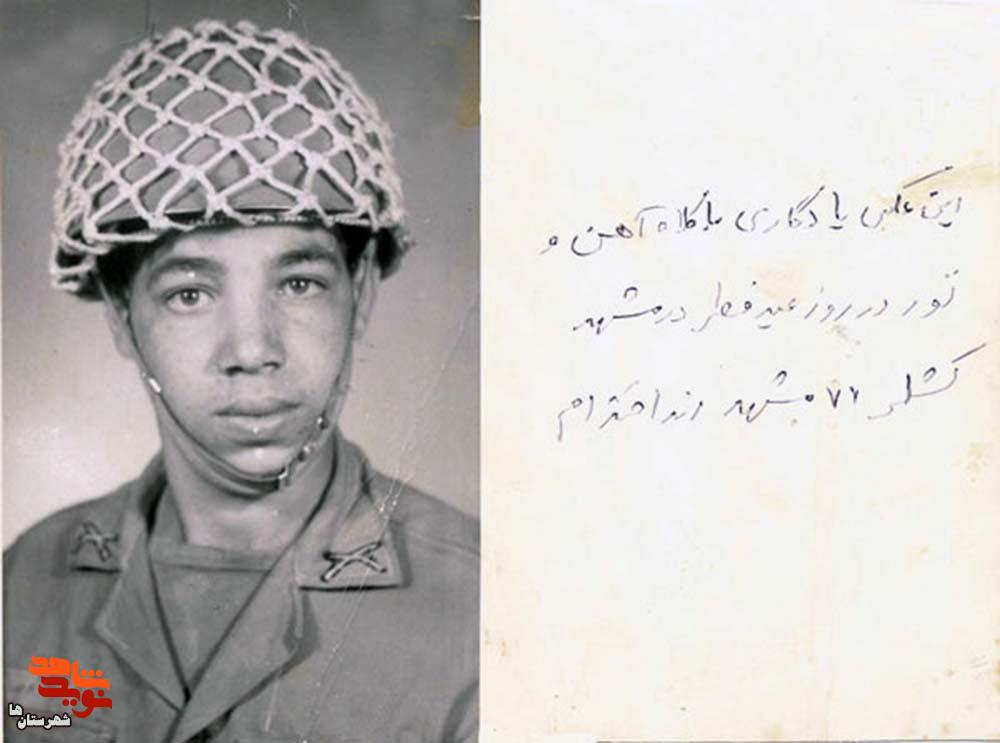 این عکس یادگاری با کلاه آهن و
تور در روز عید فطر در مشهد
لشکر ۷۷ مشهد انداختم
نوید شاهد
شهرستان ها